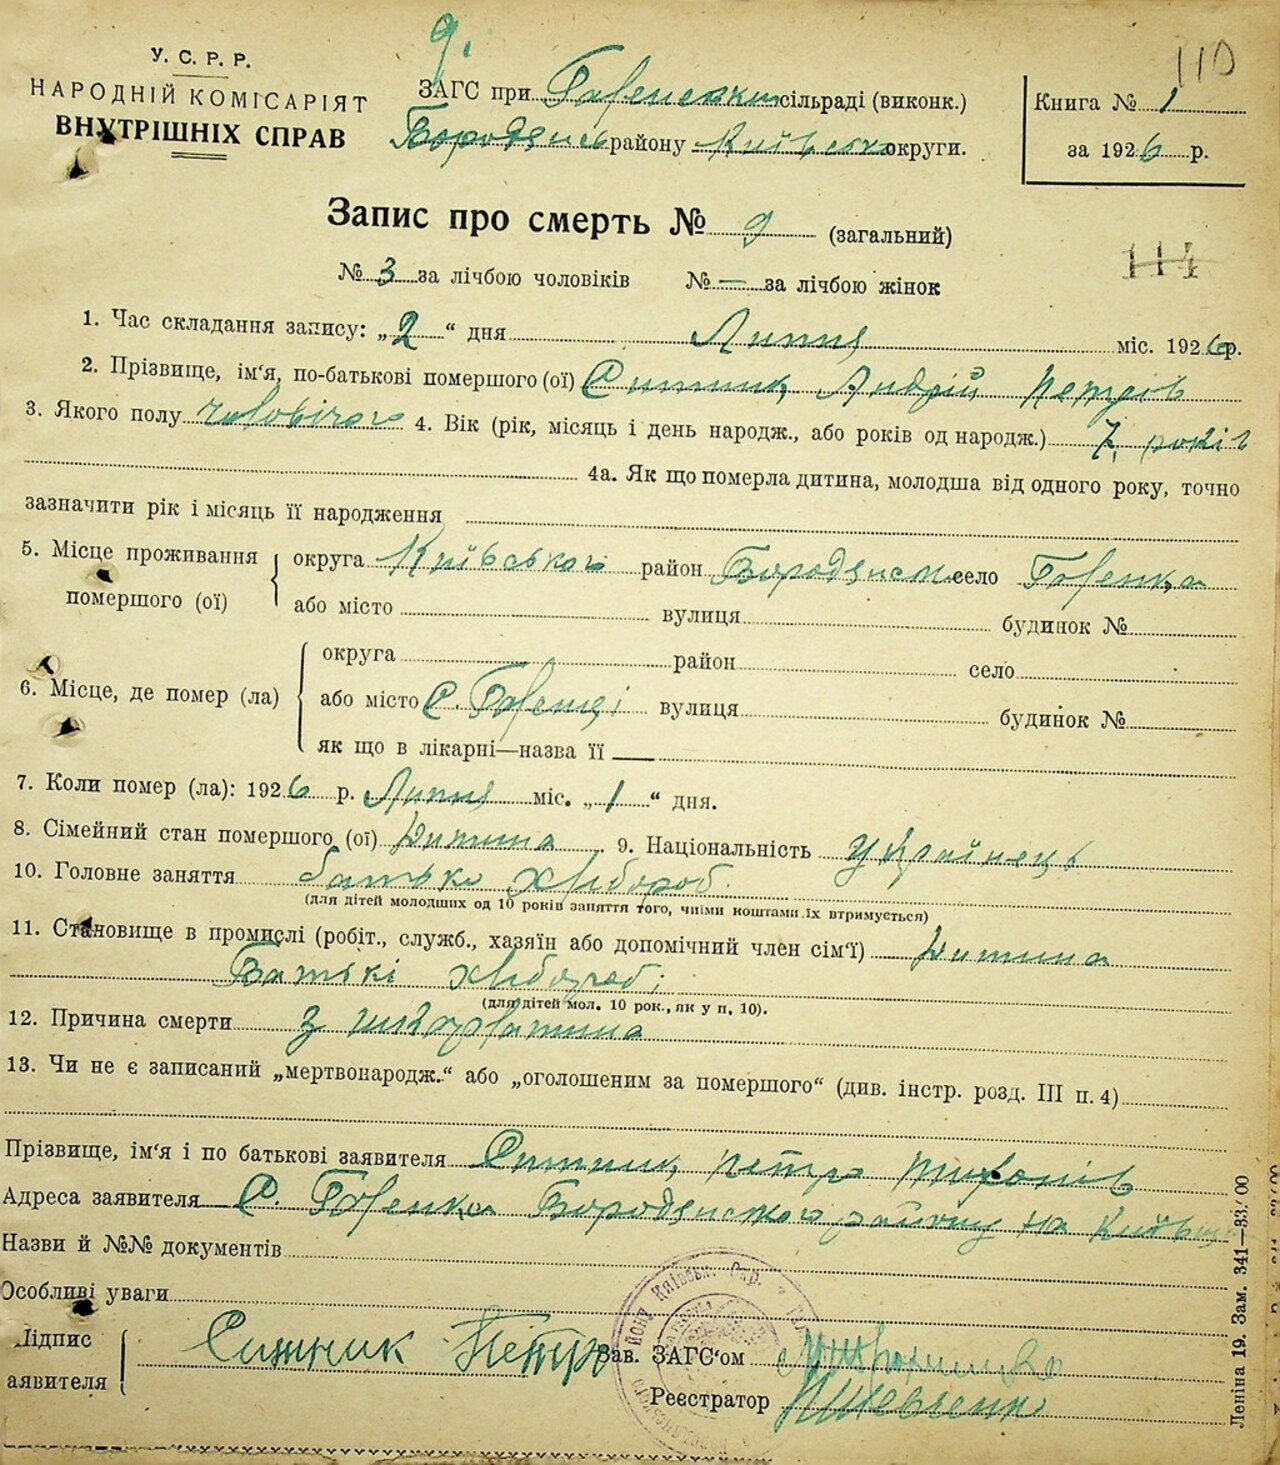 9.
110
У. С. Р. Р.
НАРОДНІЙ КОМІСАРІЯТ
ВНУТРІШНІХ СПРАВ
ЗАГС при сільраді (виконк.)
Бородянськ району Київсько округи.
Книга № 1
за 1926 р.
Запис про смерть № 9 (загальний)
114
№ 3 за лічбою чоловіків № — за лічбою жінок
1. Час складання запису: „2“ дня Липня міс. 1926 р.
2. Прізвище, ім'я, по-батькові помершого (ої) Ситник Андрій Петрів
3. Якого полу чоловічого 4. Вік (рік, місяць і день народж., або років од народж.) 7 років
4а. Як що померла дитина, молодша від одного року, точно
зазначити рік і місяць її народження
5. Місце проживання помершого (ої) округа Київського район Бородянськ село
або місто вулиця будинок №
6. Місце, де помер (ла) округа район село
або місто С. вулиця будинок №
як що в лікарні—назва її —
7. Коли помер (ла): 1926 р. Липня міс. „1“ дня.
8. Сімейний стан помершого (ої) Дитина 9. Національність Українець
10. Головне заняття батько хлібороб.
(для дітей молодших од 10 років заняття того, чиїми коштами їх втримується)
11. Становище в промислі (робіт., служб., хазяїн або допомічний член сім'ї) Дитина
Батькі хлібороб;
(для дітей мол. 10 рок., як у п. 10).
12. Причина смерти з шкарлатина
13. Чи не є записаний „мертвонародж.“ або „оголошеним за помершого“ (див. інстр. розд. III п. 4)
Прізвище, ім'я і по батькові заявителя Ситник Петро Тихонів
Адреса заявителя С. Бородянського району на Київщ
Назви й №№ документів
Особливі уваги
Підпис заявителя Ситник Петро
Зав. ЗАГС'ом
Реєстратор Шевченко
Леніна 19. Зам. 341—83/00